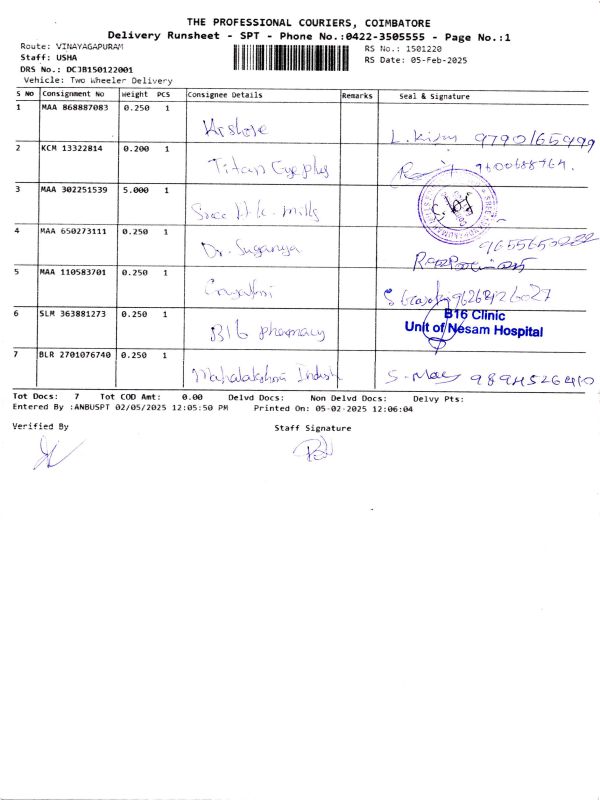 THE PROFESSIONAL COURIERS, COIMBATORE
Delivery Runsheet - SPT - Phone No.:0422-3505555 - Page No.:1
Route: VINAYAGAPURAM
RS No.: 1501220
Staff: USHA
RS Date: 05-Feb-2025
DRS No.: DCJB150122001
Vehicle: Two Wheeler Delivery
S No Consignment No Weight PCS Consignee Details Remarks Seal & Signature
1 MAA 868887083 0.250 1
9790165999
2 KCM 13322814 0.200 1
Titan Eyeplus
3 MAA 302251539 5.000 1
Sree mills
4 MAA 650273111 0.250 1
Dr. Suganya
5 MAA 110583701 0.250 1
Gayathri
6 SLM 363881273 0.250 1
B16 pharmacy
B16 Clinic
Unit of Nesam Hospital
7 BLR 2701076740 0.250 1
Mahalakshmi Indust
9894526410
Tot Docs: 7 Tot COD Amt: 0.00 Delvd Docs: Non Delvd Docs: Delvy Pts:
Entered By :ANBUSPT 02/05/2025 12:05:50 PM Printed On: 05-02-2025 12:06:04
Verified By Staff Signature